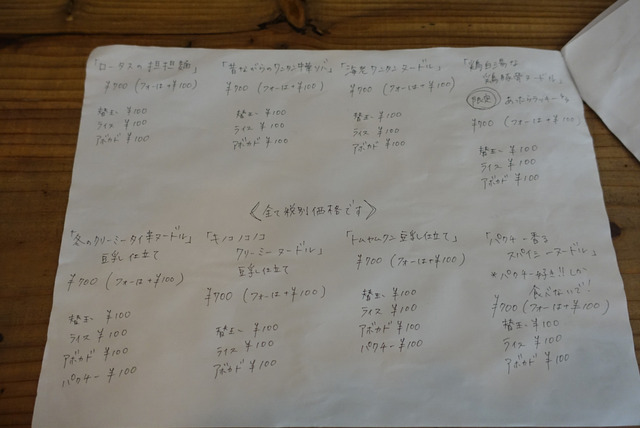 「ロータスの担担麺」
¥700 (フォーは+¥100)
替玉 ¥100
ライス ¥100
アボカド ¥100
「昔ながらのワンタン中華ソバ」
¥700 (フォーは+¥100)
替玉 ¥100
ライス ¥100
アボカド ¥100
「海老ワンタンヌードル」
¥700 (フォーは+¥100)
替玉 ¥100
ライス ¥100
アボカド ¥100
「鶏白湯な
ヌードル」
限定 あったらラッキーかも
¥900 (フォーは+¥100)
替玉 ¥100
ライス ¥100
アボカド ¥100
《全て税別価格です》
「冬のクリーミータイ辛ヌードル」
豆乳仕立て
¥700 (フォーは+¥100)
替玉 ¥100
ライス ¥100
アボカド ¥100
パクチー ¥100
「キノコノコノコ
クリーミーヌードル」
豆乳仕立て
¥700 (フォーは+¥100)
替玉 ¥100
ライス ¥100
アボカド ¥100
「トムヤムクン豆乳仕立て」
¥700 (フォーは+¥100)
替玉 ¥100
ライス ¥100
アボカド ¥100
パクチー ¥100
「パクチー香る
スパイシーヌードル」
*パクチー好き!!しか
食べないで!
¥700 (フォーは+¥100)
替玉 ¥100
ライス ¥100
アボカド ¥100